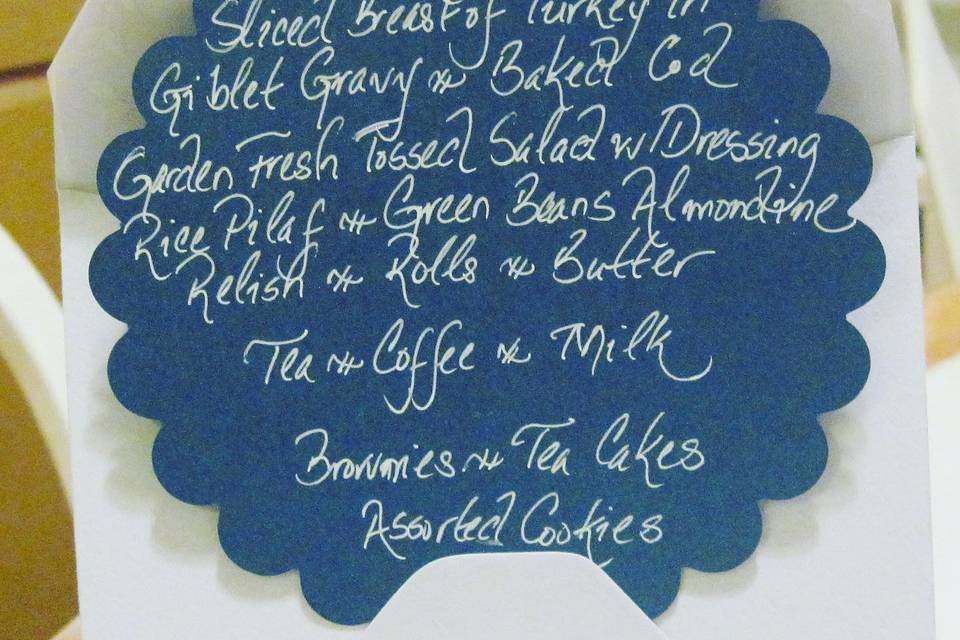 Sliced Breast of Turkey in
Giblet Gravy ~ Baked Cod
Garden Fresh Tossed Salad w/Dressing
Rice Pilaf ~ Green Beans Almondine
Relish ~ Rolls ~ Butter
Tea ~ Coffee ~ Milk
Brownies ~ Tea Cakes
Assorted Cookies